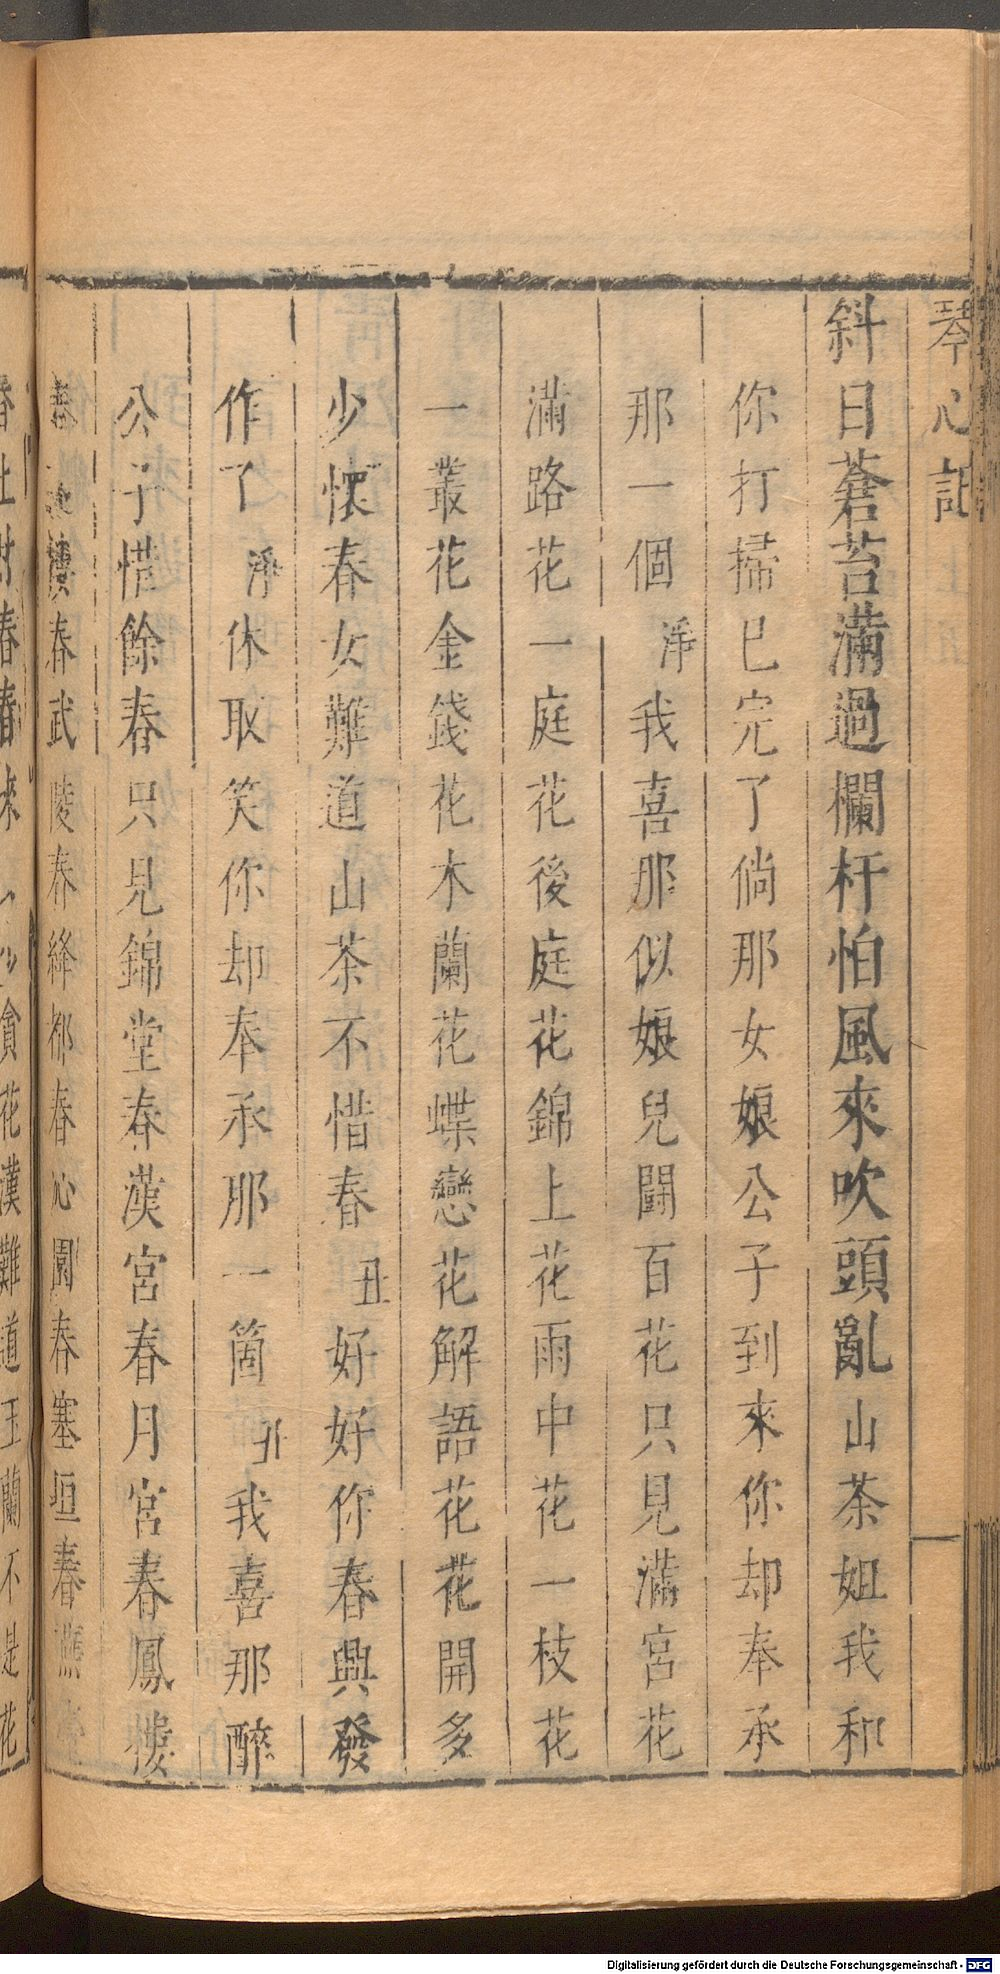 琴心記
斜日蒼苔滿過欄杆怕風來吹頭亂山茶姐我和
你打掃已完了倘那女娘公子到來你却奉承
那一個淨我喜那似娘兒鬪百花只見滿宮花
滿路花一庭花後庭花錦上花雨中花一枝花
一叢花金錢花木蘭花蝶戀花解語花花開多
少懷春女難道山茶不惜春丑好好你春興發
作了淨休取笑你却奉承那一箇丑我喜那醉
公子惜餘春只見錦堂春漢宮春月宮春鳳樓
春 樓春武陵春絳都春心園春塞垣春
春 春春來 少貪花漢難道玉蘭不是花
Digitalisierung gefördert durch die Deutsche Forschungsgemeinschaft - DFG